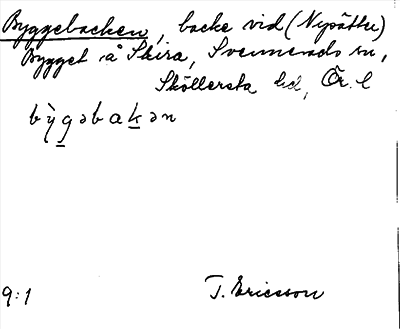 Byggebacken, backe vid (Nysättu)
Bygget å Skira, Svennevads sn,
Sköllersta hd, Ör. l
bỳgəbakən
9:1 T. Ericsson